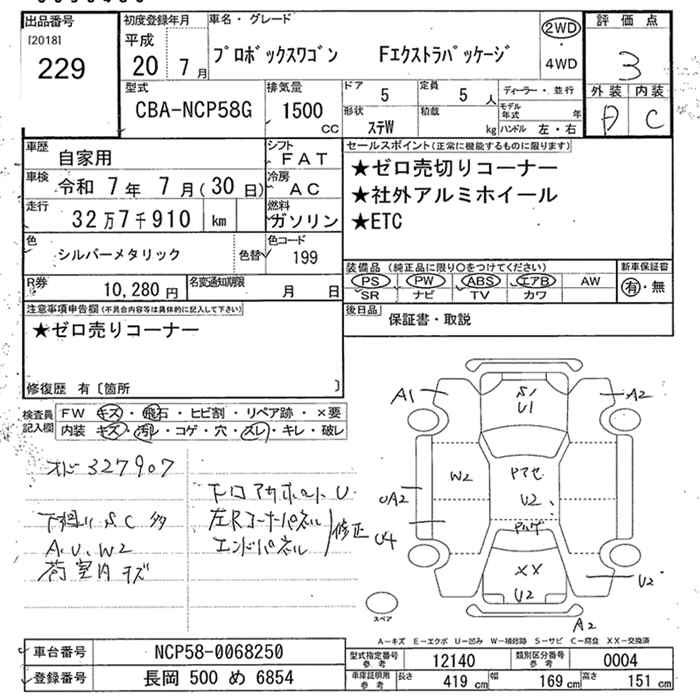 出品番号
[2018]
229
初度登録年月
平成
20 7月
車名・グレード
プロボックスワゴン Fエクストラパッケージ
2WD
・
4WD
評価点
3
外装 内装
A C
型式
CBA-NCP58G
排気量
1500
CC
ドア 5
定員 5 人
ディーラー・並行
形状 ステW
積載 kg
モデル年式 年
ハンドル 左・右
車歴
自家用
シフト
FAT
車検
令和 7年 7月(30日)
冷房
AC
走行
32万7千910 km
燃料
ガソリン
色
シルバーメタリック
色替
色コード
199
R券
10,280円
名変通知期限
月 日
セールスポイント(正常に機能するものに限ります)
★ゼロ売切りコーナー
★社外アルミホイール
★ETC
装備品(純正品に限り○をつけてください)
PS PW ABS エアB AW
SR ナビ TV カワ
新車保証書
有・無
後日品
保証書・取説
注意事項申告欄(不具合内容等は具体的に記入して下さい)
★ゼロ売りコーナー
修復歴 有〔箇所 〕
検査員記入欄
FW キズ・飛石・ヒビ割・リペア跡・×要
内装 キズ・汚レ・コゲ・穴・スレ・キレ・破レ
オド327907
下廻りSC多
A.U.W2
荷室内キズ
左Rコーナーパネル
エンドパネル
修正
A1
A2
U1
W2
UA2
U4
U2
XX
U2
U2
A2
スペア
A-キズ E-エクボ U-凹み W-補修跡 S-サビ C-腐食 XX-交換済
車台番号
NCP58-0068250
登録番号
長岡 500 め 6854
型式指定番号
参考
12140
類別区分番号
参考
0004
車庫証明用
参考
長さ 419 cm
幅 169 cm
高さ 151 cm